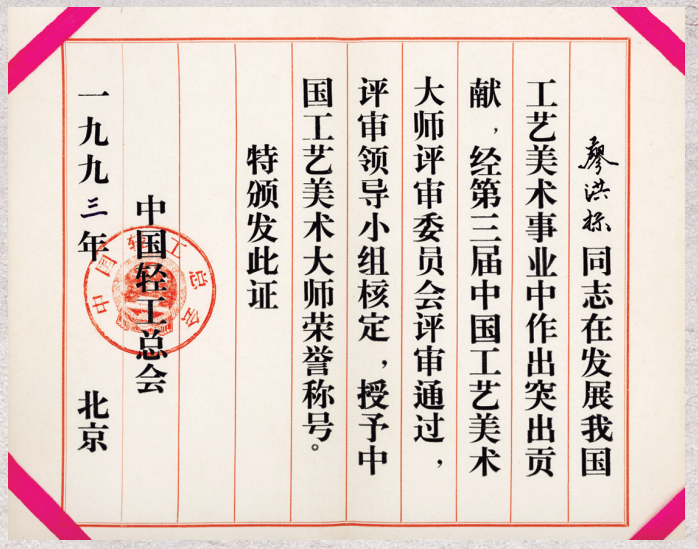 廖洪标同志在发展我国
工艺美术事业中作出突出贡
献，经第三届中国工艺美术
大师评审委员会评审通过，
评审领导小组核定，授予中
国工艺美术大师荣誉称号。
特颁发此证
中国轻工总会
一九九三年 北京
中国轻工总会